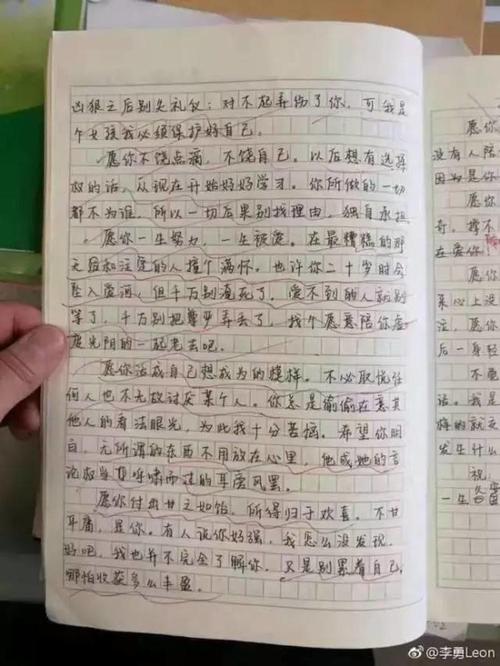 凶狠之后别失礼仪：对不起弄伤了你，可我是
个女孩我必须保护好自己。
愿你不饶点痛，不饶自己。以后想有选择
权的话，从现在开始好好学习。你所做的一切
都不为谁，所以一切后果别找理由，独自承担。
愿你一生努力，一生被爱。在最糟糕的那
天后和注定的人撞个满怀。也许你二十岁时会
坠入爱河，但千万别淹死了，爱不到的人就别
等了，千万别把尊严弄丢了，找个愿意陪你虚
度光阴的一起老去吧。
愿你活成自己想成为的模样。不必取悦任
何人也不无故讨厌某个人。你总是偷偷在意其
他人的看法眼光，为此我十分苦恼。希望你明
白，无所谓的东西不用放在心里，他或她的言
论权当呼啸而过的耳旁风罢。
愿你付出甘之如饴，所得归于欢喜。不甘
平庸，是你。有人说你好强，我怎么没发现，
好吧，我也并不完全了解你。只是别累着自己，
哪怕收获多么丰盈。
愿你
没有人陪
因为是你
愿
奇，撑不
在爱你
愿
来心上没
注，愿你
后一身轻
不要
话。我是
悔的就
发生什么
祝
一生
@李勇Leon